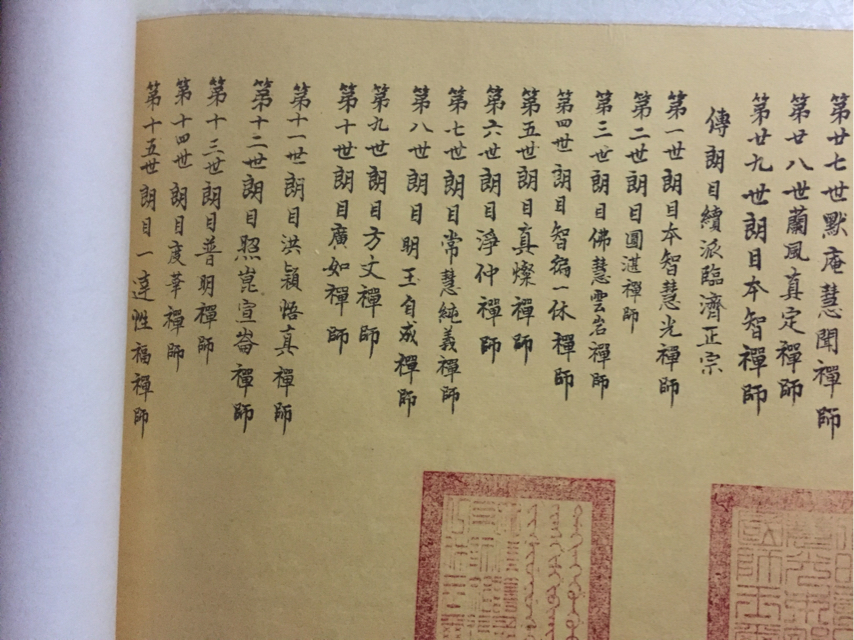 第廿七世默庵慧聞禪師
第廿八世蘭風真定禪師
第廿九世朗目本智禪師
傳朗目續派臨濟正宗
第一世朗目本智慧光禪師
第二世朗目圓湛禪師
第三世朗目佛慧雲岩禪師
第四世朗目智福一休禪師
第五世朗目真燦禪師
第六世朗目淨仲禪師
第七世朗目常慧純義禪師
第八世朗目明玉自成禪師
第九世朗目方文禪師
第十世朗目廣如禪師
第十一世朗目洪穎悟真禪師
第十二世朗目照崑宣崙禪師
第十三世朗目普明禪師
第十四世朗目度華禪師
第十五世朗目一達性福禪師